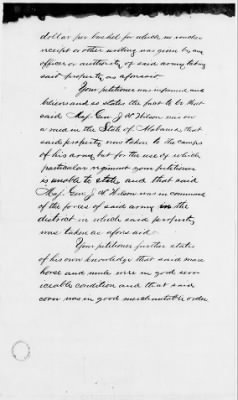 dollar per bushel for which no voucher
receipt or other writing was given by any
officer or authority of said army taking
said property as aforesaid
Your petitioner was informed and
believes and so states the fact to be that
said Maj. Gen J H Wilson was on
a raid in the State of Alabama, that
said property was taken to the camps
of his army but for the use of which
particular regiment your petitioner
is unable to state and that said
Maj. Gen J H Wilson was in command
of the forces of said army in the
district in which said property
was taken as aforesaid
Your petitioner further states
of his own knowledge that said mare
horse and mule were in good serv
iceable condition and that said
corn was in good merchantable order